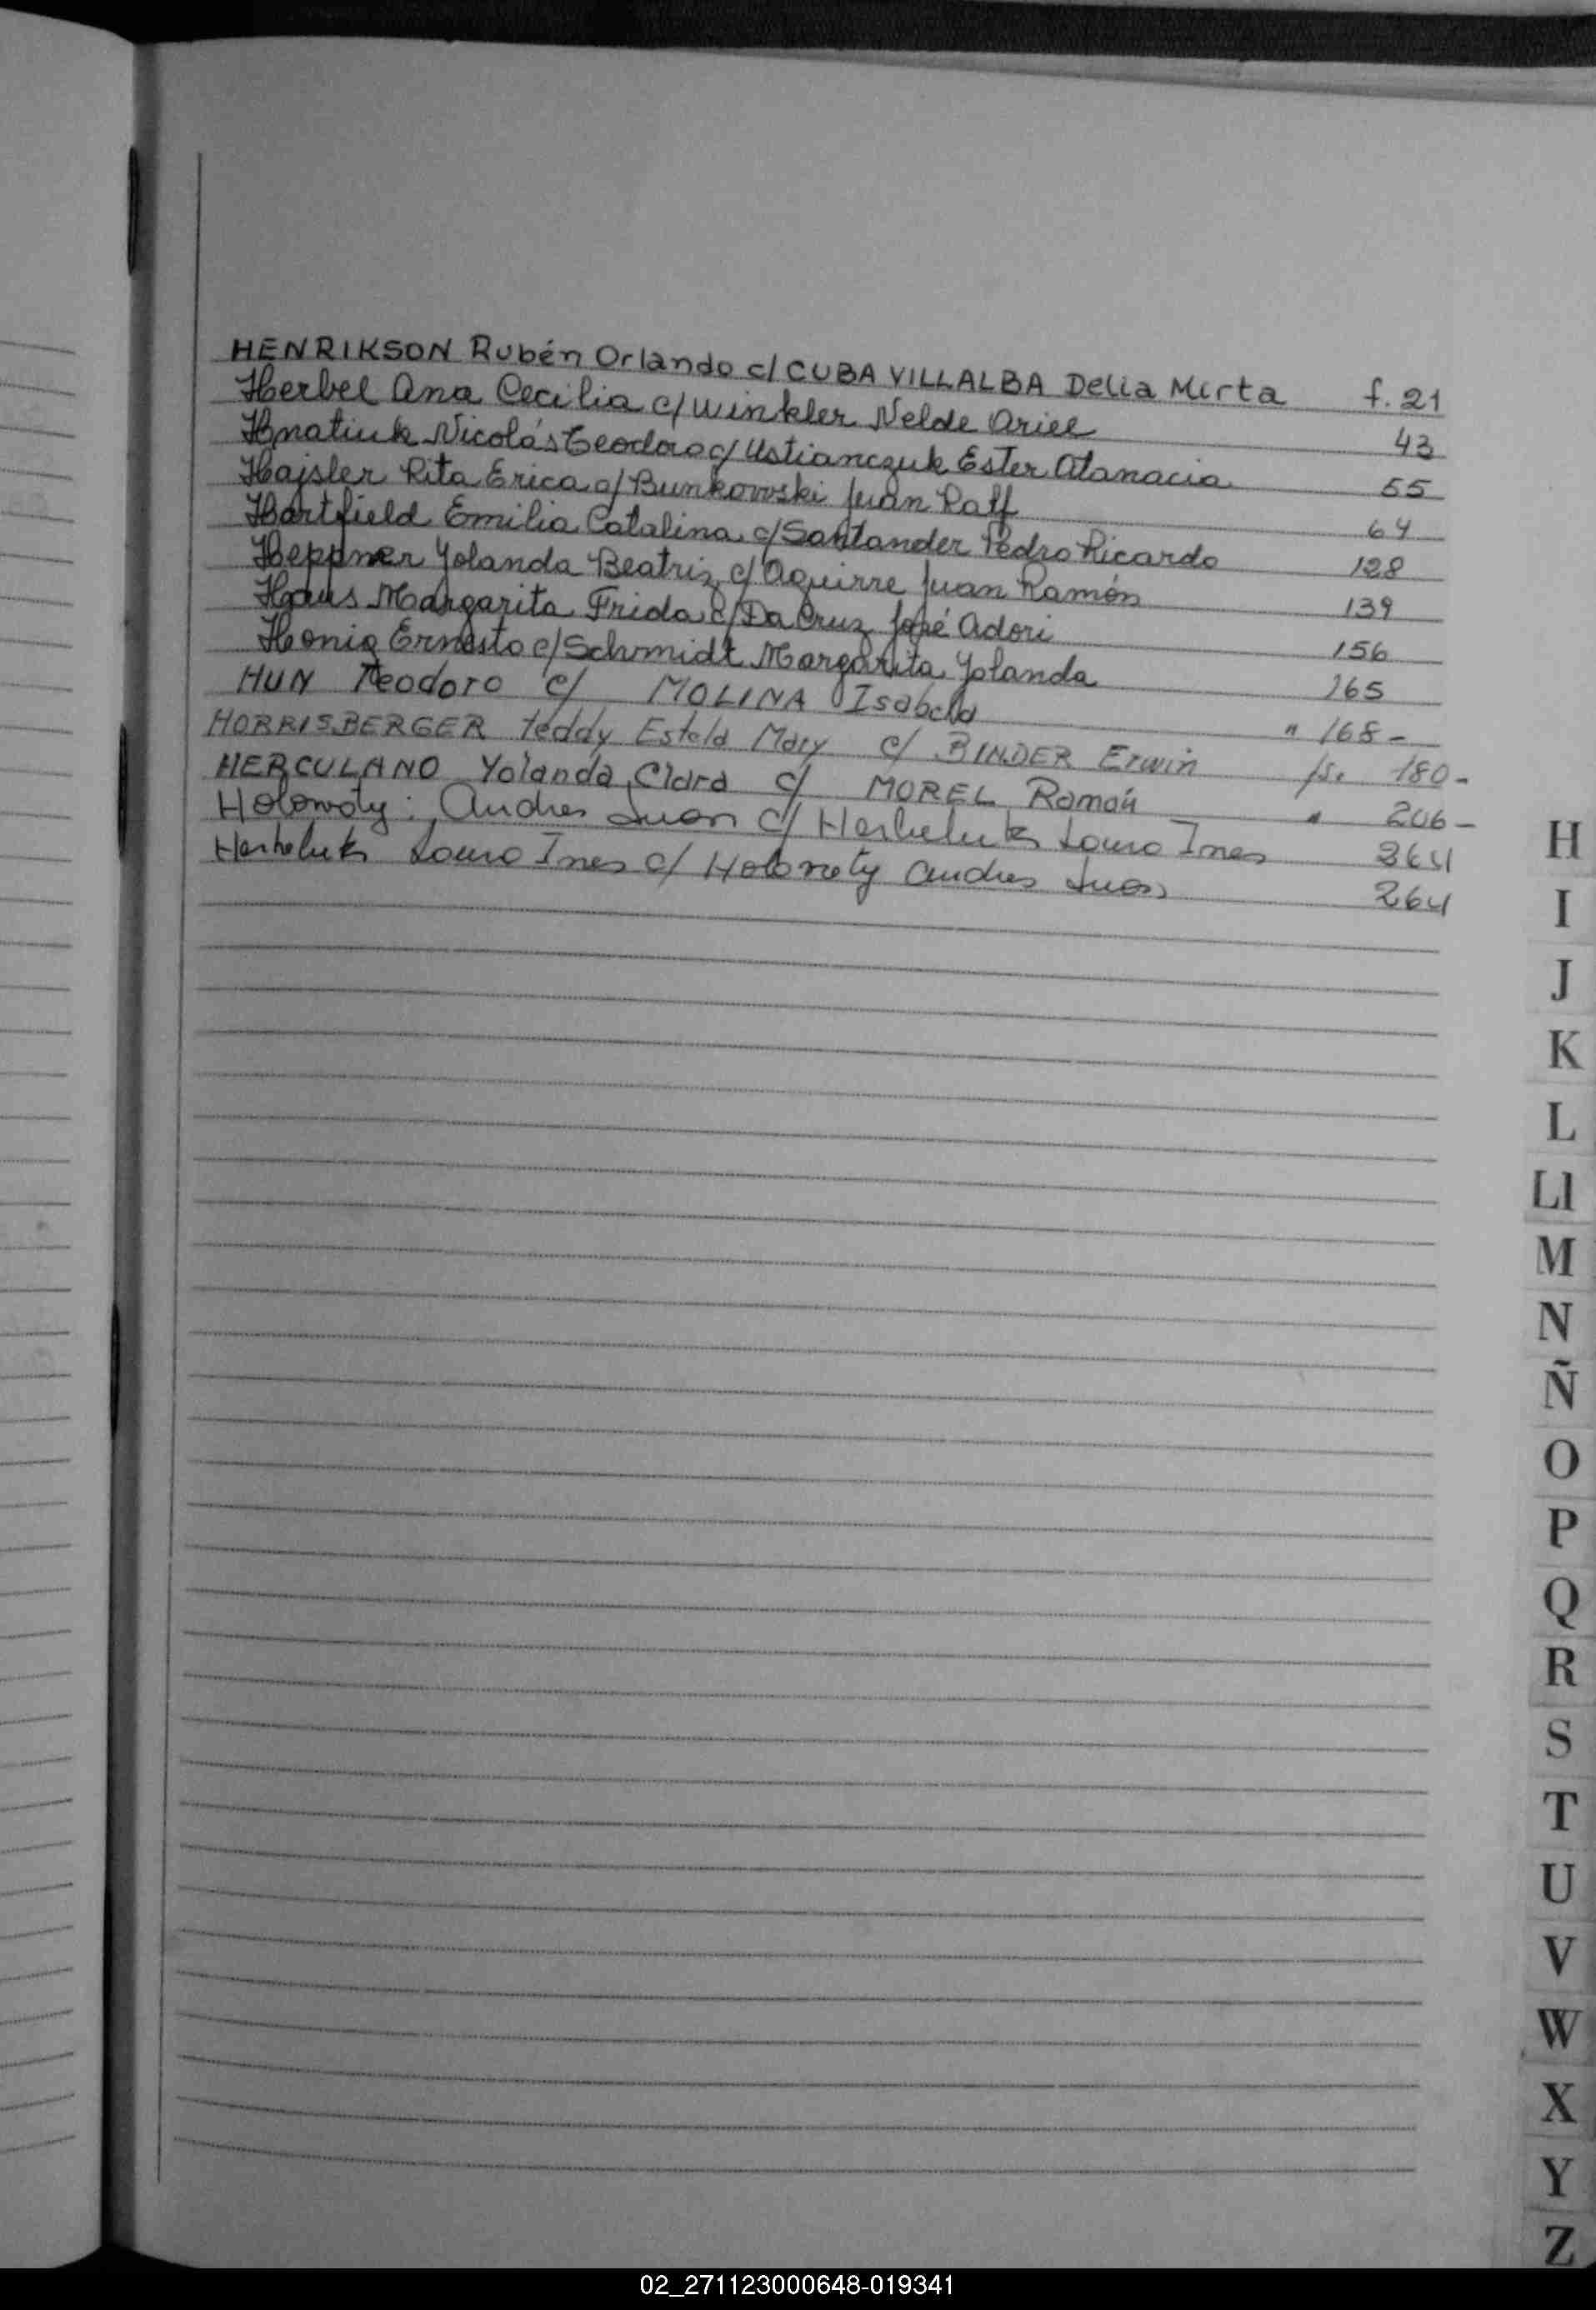 HENRIKSON Rubén Orlando c/ CUBA VILLALBA Delia Mirta f. 21
Herbel Ana Cecilia c/ Winkler Nelde Ariel 43
Hnatiuk Nicolás Teodoro c/ Ustianczuk Ester Atanacia 55
Hajsler Rita Erica c/ Bunkovski Juan Ralf 64
Hartfield Emilia Catalina c/ Santander Pedro Ricardo 128
Heppner Yolanda Beatriz c/ Aguirre Juan Ramón 139
Haus Margarita Frida c/ Da Cruz José Adori 156
Honig Ernesto c/ Schmidt Margarita Yolanda 165
HUN Teodoro c/ MOLINA Isabela " 168-
HORRISBERGER Teddy Estela Mary c/ BINDER Erwin fs. 180-
HERCULANO Yolanda Clara c/ MOREL Ramón " 206-
Andres Juan c/ Ines 264
Ines c/ Andres Juan 264
H
I
J
K
L
Ll
M
N
Ñ
O
P
Q
R
S
T
U
V
W
X
Y
Z
02_271123000648-019341